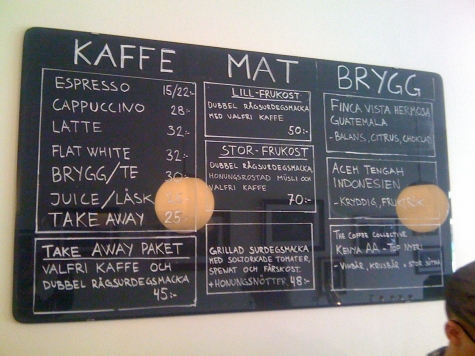 KAFFE
ESPRESSO 15/22:-
CAPPUCCINO 28:-
LATTE 32:-
FLAT WHITE 32:-
BRYGG/TE
JUICE/LÄSK
TAKE AWAY 25:-
TAKE AWAY PAKET
VALFRI KAFFE OCH
DUBBEL RÅGSURDEGSMACKA
45:-
MAT
LILL-FRUKOST
DUBBEL RÅGSURDEGSMACKA
MED VALFRI KAFFE
50:-
STOR-FRUKOST
DUBBEL RÅGSURDEGSMACKA
HONUNGSROSTAD MÜSLI OCH
VALFRI KAFFE
70:-
GRILLAD SURDEGSMACKA
MED SOLTORKADE TOMATER,
SPENAT OCH FÄRSKOST.
+HONUNGSNÖTTER 48:-
BRYGG
FINCA VISTA HERMOSA
GUATEMALA
- BALANS, CITRUS, CHOKLAD
ACEH TENGAH
INDONESIEN
- KRYDDIG,
THE COFFEE COLLECTIVE
KENYA AA -
- VINBÄR, KRUSBÄR + STOR